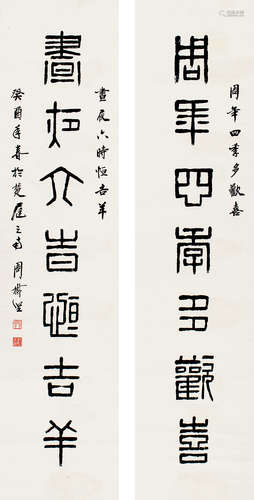 周年四季多歡喜
周年四季多歡喜
晝夜六時恒吉羊
晝夜六時恒吉羊
癸酉年春於楚庭之南 周樹堅